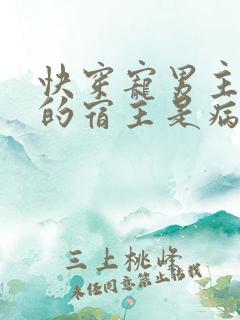 快穿寵男主
的宿主是病
三上桃峰
未经同意禁止转载